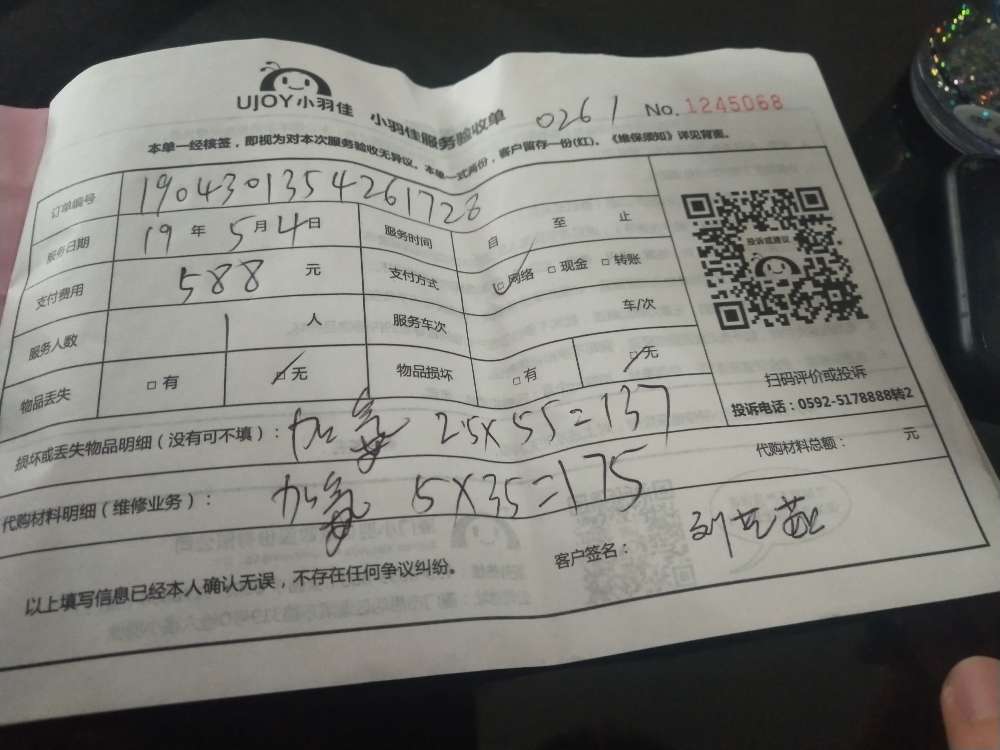 UJOY小羽佳 小羽佳服务验收单 0261 No.1245068
本单一经核签，即视为对本次服务验收无异议。本单一式两份，客户留存一份(红)。《维保须知》详见背面。
订单编号 1904301354261728
服务日期 19 年 5 月 4 日 服务时间 自 至 止
支付费用 588 元 支付方式 网络 现金 转账
服务人数 1 人 服务车次 车/次
物品丢失 有 无 物品损坏 有 无
投诉或建议
扫码评价或投诉
投诉电话：0592-5178888转2
损坏或丢失物品明细（没有可不填）： 加氟 2.5×55=137
代购材料明细（维修业务）： 加氟 5×35=175
代购材料总额： 元
以上填写信息已经本人确认无误，不存在任何争议纠纷。
客户签名：